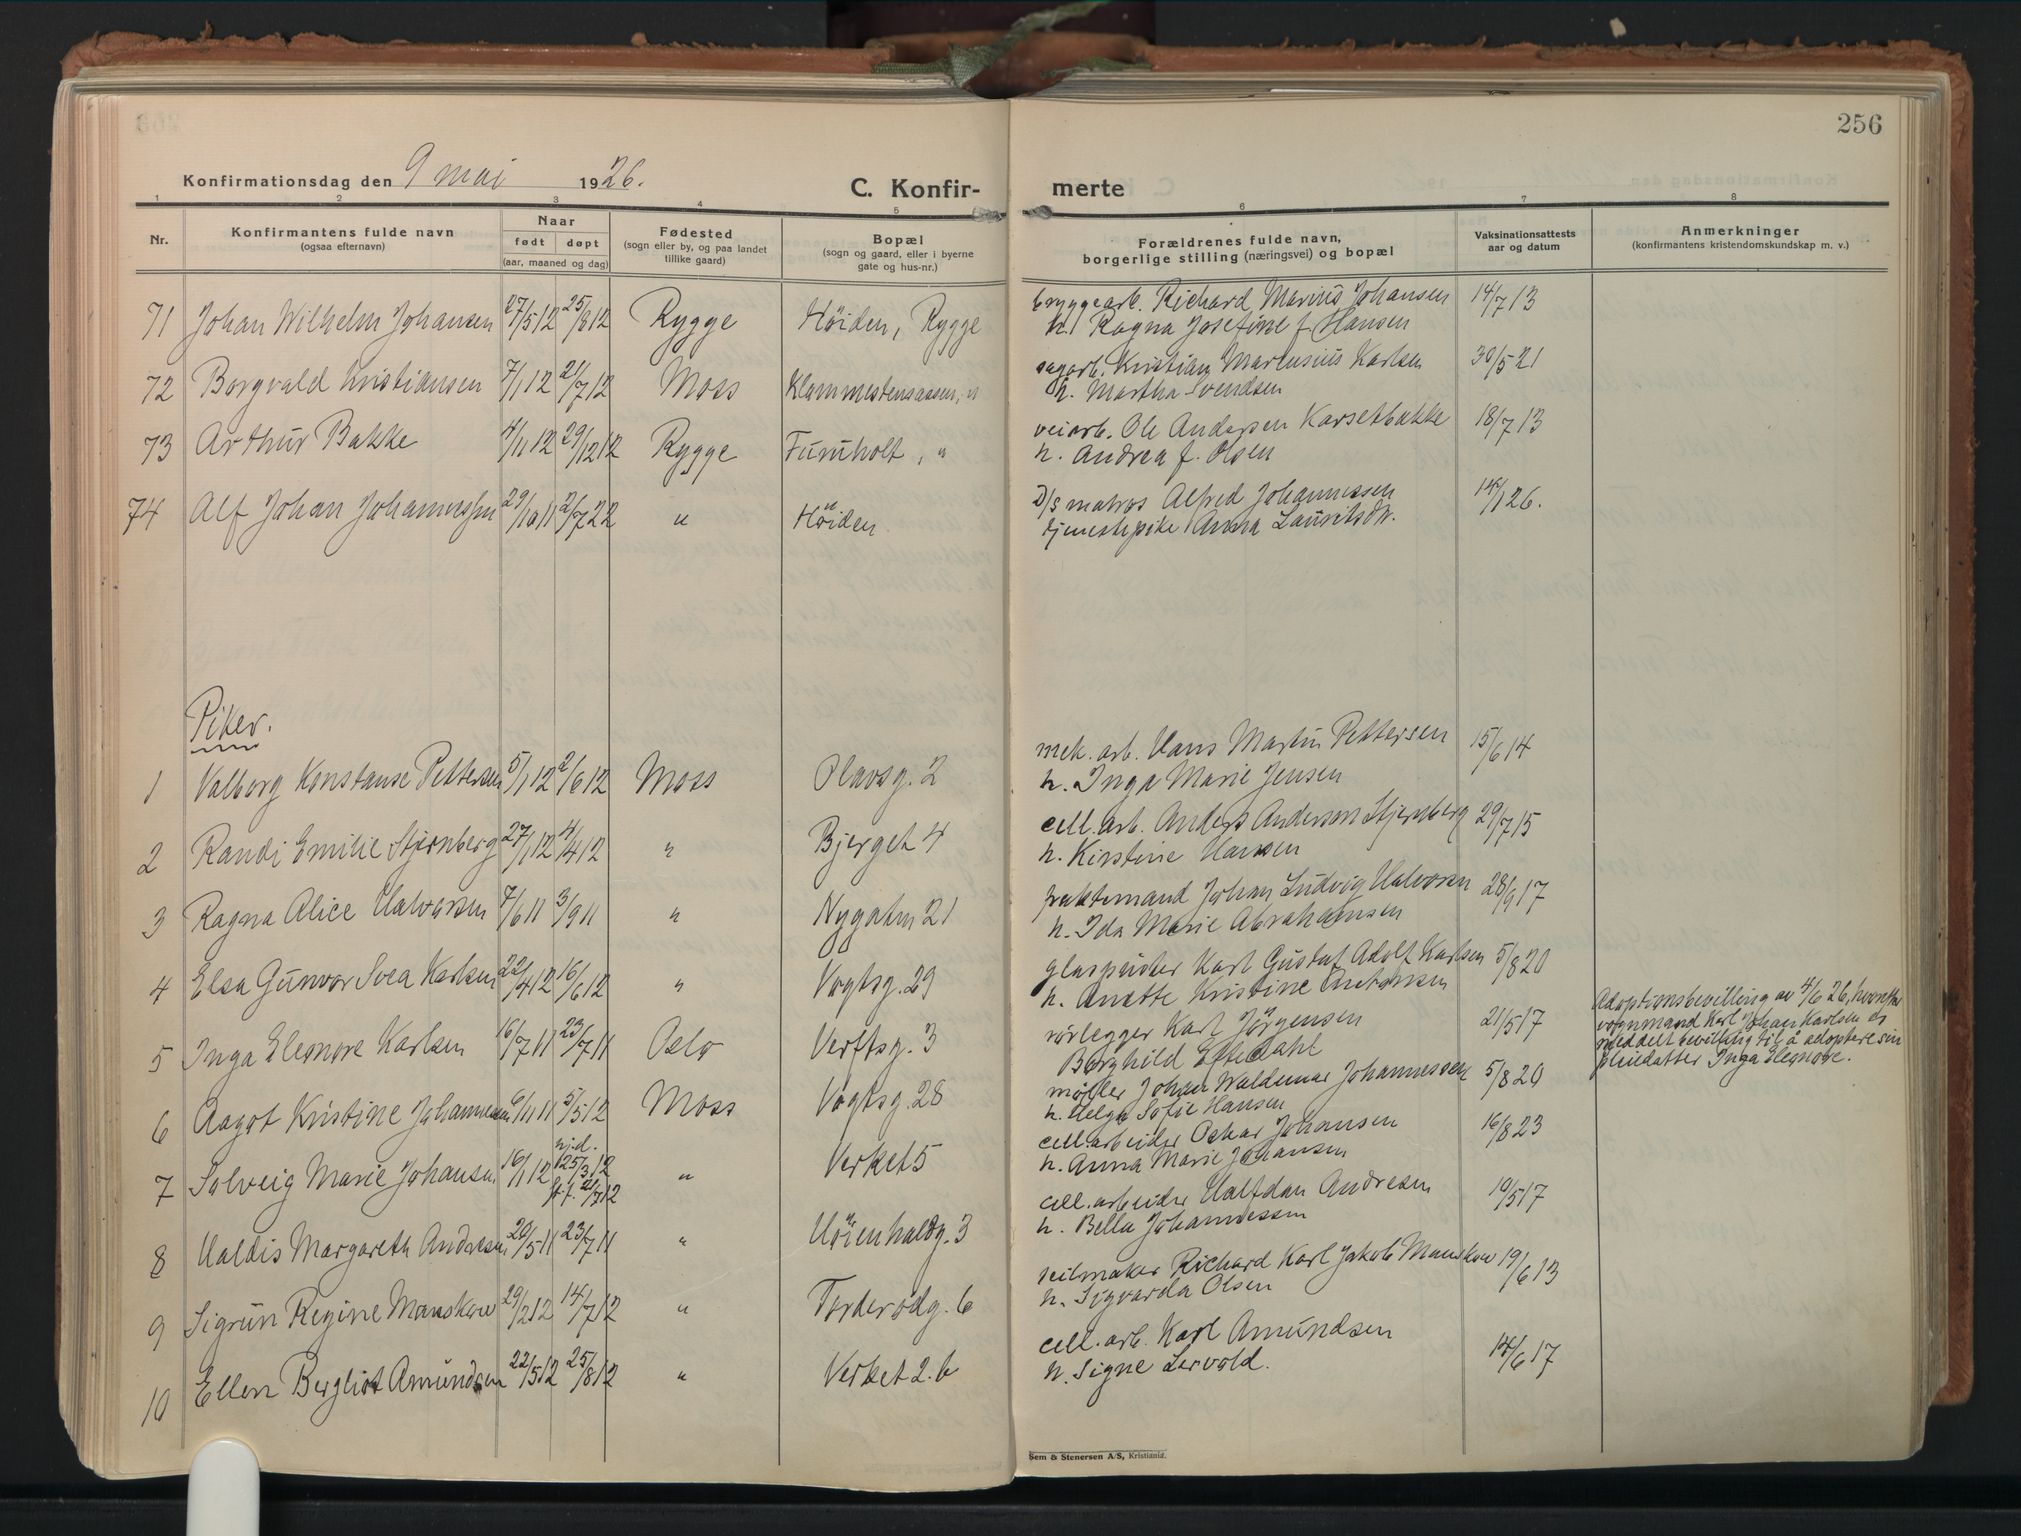 256
Konfirmationsdag den 9 mai 1926.
C. Konfir- merte
1 2 3 4 5 6 7 8
Nr.
Konfirmantens fulde navn
(ogsaa efternavn)
Naar
født døpt
(aar, maaned og dag)
Fødested
(sogn eller by, og paa landet
tillike gaard)
Bopæl
(sogn og gaard, eller i byerne
gate og hus-nr.)
Forældrenes fulde navn,
borgerlige stilling (næringsvei) og bopæl
Vaksinationsattests
aar og datum
Anmerkninger
(konfirmantens kristendomskundskap m. v.)
71 Johan Wilhelm Johansen 27/5 12 25/8 12 Rygge Höiden, Rygge bryggearb. Richard Marius Johansen 14/7 13
h. Ragna Josefine f. Hansen
72 Borgvald Kristiansen 7/1 12 21/7 12 Moss sagarb. Kristian Marensius Karlsen 30/5 21
h. Martha Svendsen
73 Arthur Bakke 4/11 12 29/12 12 Rygge Furuholt, " veiarb. Ole Andersen Karsetbakke 18/7 13
h. Andrea f. Olsen
74 Alf Johan Johannessen 29/10 11 2/7 22 " Höiden " D/s matros Alfred Johannessen 14/1 26.
tjenestepike Anna Lauritsdtr.
Piker.
1 Valborg Konstanse Pettersen 5/1 12 2/6 12 Moss Olavsg. 2 mek. arb. Hans Martin Pettersen 15/6 14
h. Inga Marie Jensen
2 Randi Emilie Stjernberg 27/1 12 4/4 12 " Bjerget 4 cell. arb. Anders Anderson Stjernberg 29/7 15
h. Kirstine Hansen
3 Ragna Alice Halvorsen 7/6 11 3/9 11 " Nygaten 21 fraktemand Johan Ludvig Halvorsen 28/9 17
h. Ida Marie Abrahamsen
4 Elsa Gunvor Svea Karlsen 22/4 12 16/6 12 " Vogtsg. 29 glaspuster Karl Gustaf Adolf Karlsen 5/8 20
h. Anette Kristine Antonsen
5 Inga Eleonore Karlsen 16/7 11 23/7 11 Oslo Verftsg. 3 rörlegger Karl Jörgensen 21/5 17
Borghild Eftedahl
Adoptionsbevilling av 4/6 26, hvorefter
vognmand Karl Johan Karlsen er
meddelt bevilling til å adoptere sin
pleiedatter Inga Eleonore.
6 Aagot Kristine Johannessen 6/11 11 5/5 12 Moss Vogtsg. 28 møller Johan Waldemar Johannessen 5/8 20
h. Helga Sofie Hansen
7 Solveig Marie Johansen 16/1 12 h.d. 25/3 12 " Verket 5 cell.arbeider Oskar Johansen 16/8 23
st. f. 21/7 12 h. Anna Marie Johansen
8 Haldis Margareth Andresen 20/5 11 23/7 11 " Hörenhaldg. 3 cell. arbeider Halfdan Andresen 19/5 17
h. Bella Johannessen
9 Sigrun Regine Manskow 29/2 12 14/7 12 " Torderødg. 6 seilmaker Richard Karl Jakob Manskow 19/6 13
h. Sigvarda Olsen
10 Ellen Bergliot Amundsen 22/5 12 25/8 12 " Verket 2.b cell. arb. Karl Amundsen 14/6 17
h. Signe Lervold.
Sem & Stenersen A/S, Kristiania.